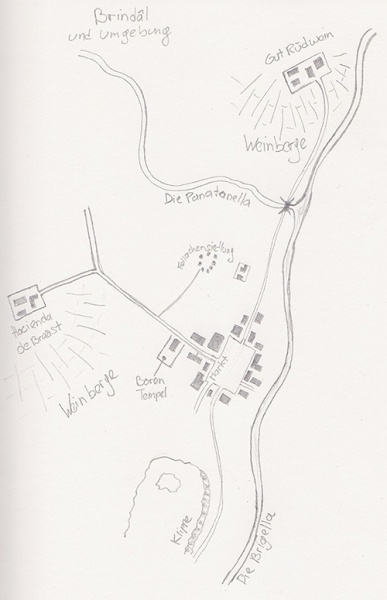 Brindâl
und umgebung
Gut Rüdwain
Weinberge
Die Panatonella
Fellachensiedlung
Hacienda
de Braast
Weinberge
Markt
Boron
Tempel
Klippe
Die Brigella